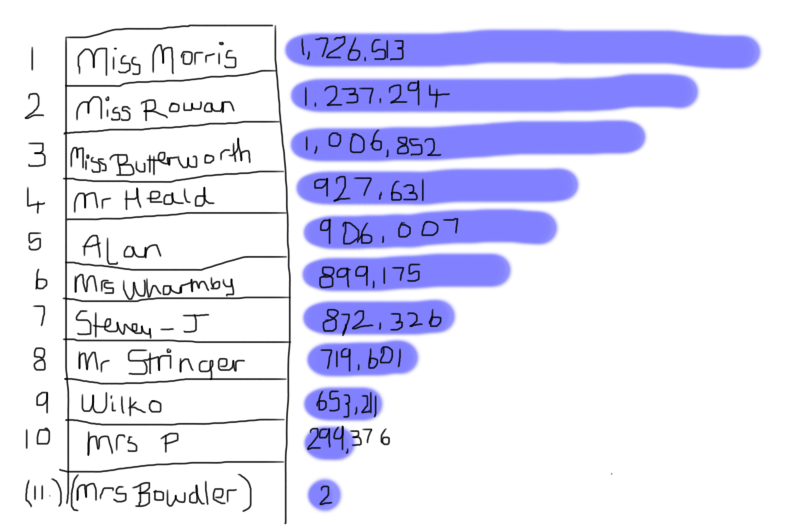 1 Miss Morris 1,726,513
2 Miss Rowan 1,237,294
3 Miss Butterworth 1,006,852
4 Mr Heald 927,631
5 ALan 906,007
6 Mrs Wharmby 899,175
7 Stevey-J 872,326
8 Mr Stringer 719,601
9 Wilko 653,211
10 Mrs P 294,376
(11.) (Mrs Bowdler) 2